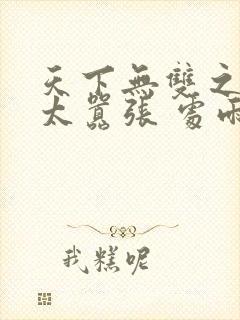 天下無雙之
太囂張 處雨
我糕呢